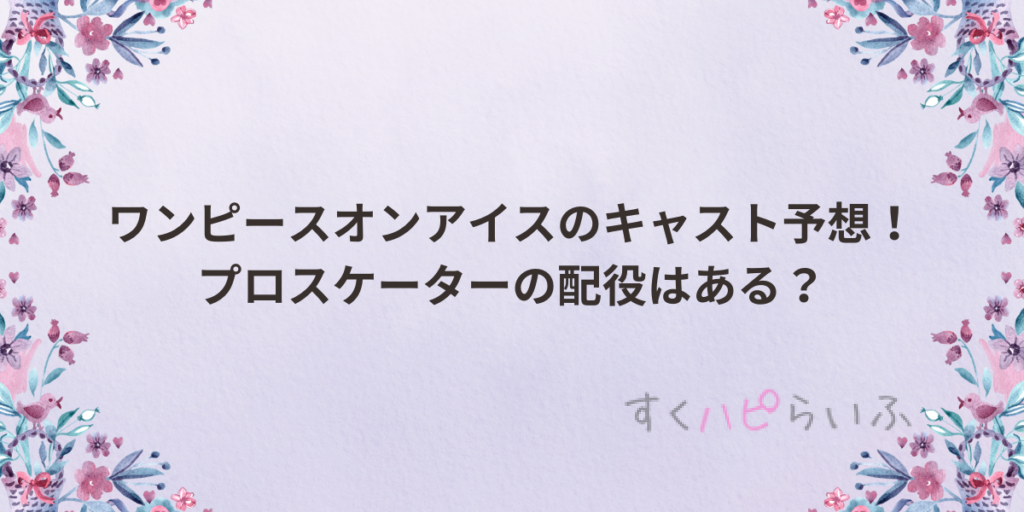 ワンピースオンアイスのキャスト予想！
プロスケーターの配役はある？
すくハピらいふ